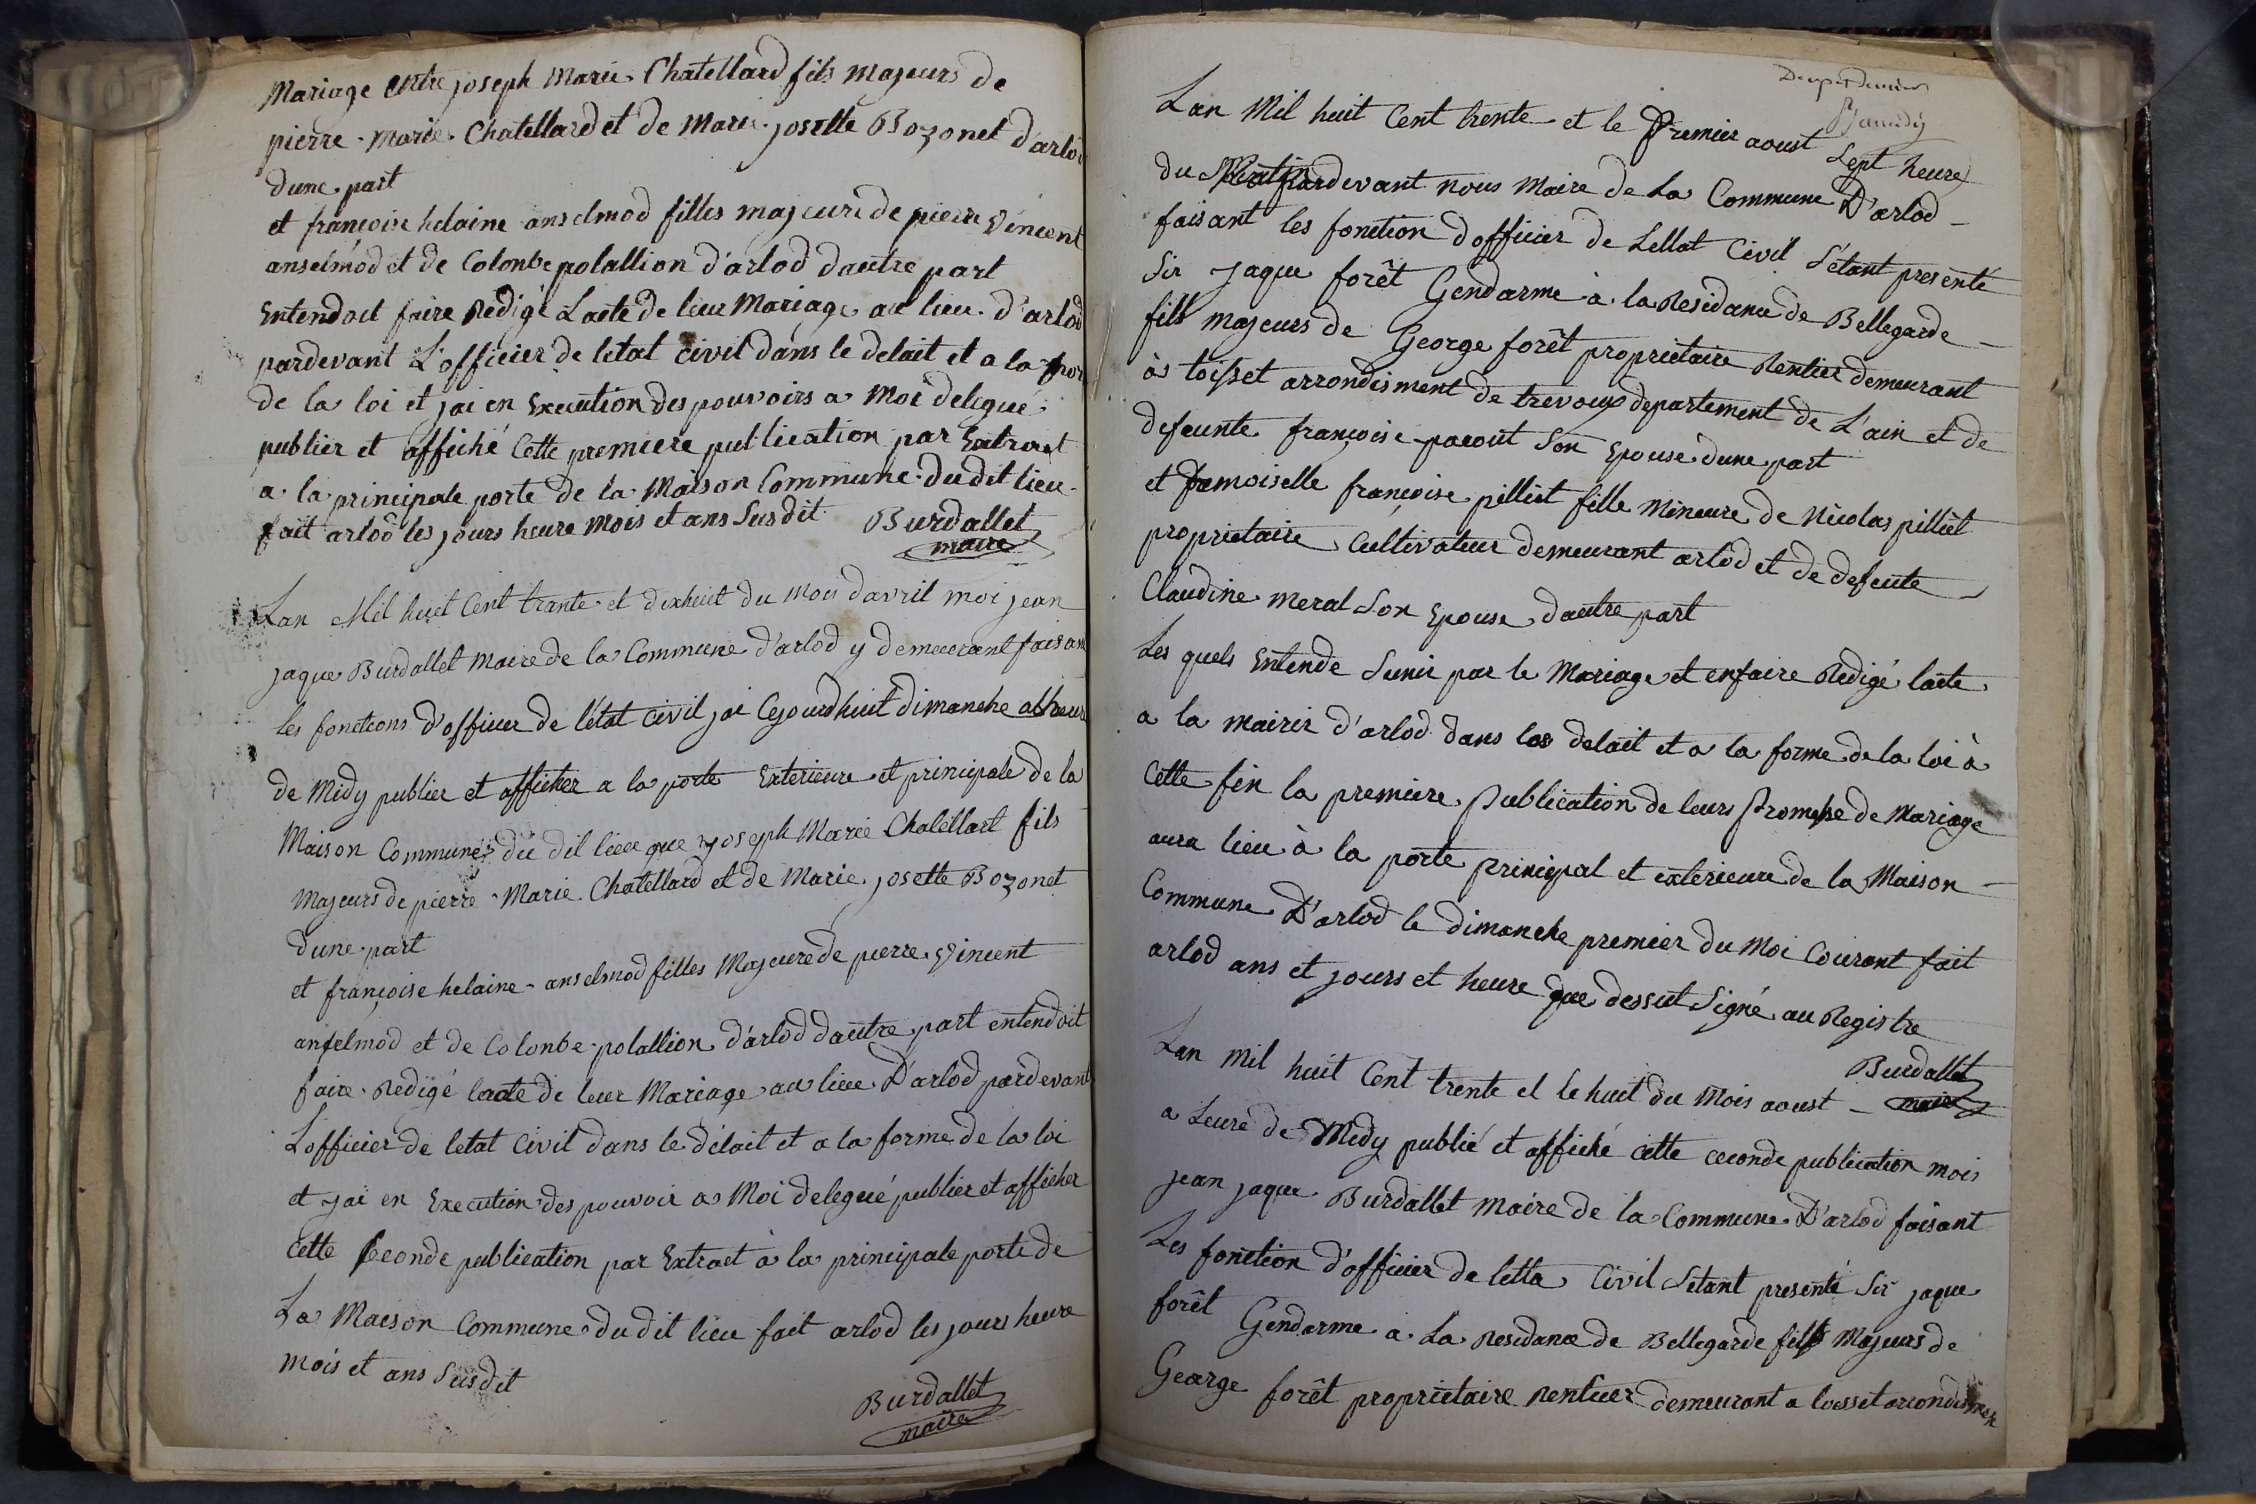 Mariage entre joseph Marie Chatellard fils majeurs de
pierre Marie Chatellard et de Marie josette Bozonet d'arlod
dune part
et françoise helaine anselmod filles majeure de pierre Vincent
anselmod et de Colonbe polallion d'arlod dautre part
Entendoit faire Redigé Lacte de leur Mariage au lieu d'arlod
pardevant L'officier de letat civil dans le delait et a la
de la loi et jai en Execution des pouvoirs a Moi delegué
publier et affiché Cette premiere publication par Extrait
a la principale porte de la Maison Commune du dit lieu
fait arlod les jours heure mois et ans Susdit Burdallet
maire
Lan Mil huit Cent trante et dixhuit du mois davril moi jean
jaque Burdallet Maire de la Commune d'arlod y demeurant faisan
les fonctions d'officier de létat civil jai Cejourdhuit dimanche alheure
de Midy publier et afficher a la porte Exterieure et principale de la
Maison Commune du dit lieu que joseph Marie Chatellart fils
Majeurs de pierre Marie Chatellard et de Marie josette Bozonet
dune part
et françoise helaine anselmod filles Majeure de pierre Vincent
anselmod et de Colonbe polallion d'arlod dautre part entendoit
faire Redigé lacte de leur Mariage au lieu D'arlod pardevant
Lofficier de letat Civil dans le délait et a la forme de la loi
et jai en Execution des pouvoir a Moi delegué publier et afficher
Cette seconde publication par Extraet à la principale porte de
La Maison Commune du dit lieu fait arlod les jours heure
mois et ans Susdit
Burdallet
maire
Lan Mil huit Cent trente et le Premier aoust Sept heure
du Matin pardevant nous Maire de La Commune D'arlod
faisant les fonction d'officier de Lettat Civil S'étant presenté
Sir jaque forêt Gendarme à la Residance de Bellegarde
fils majeurs de George forêt proprietaire Rentier demeurant
à toisset arrondisment de trevoux departement de L'ain et de
defeunte françoise pacout Son Epouse dune part
et Demoiselle françoise pilliet fille Mineure de Nicolas pilliet
proprietaire Cultivateur demeurant arlod et de defeute
Claudine meral Son Epouse dautre part
Les quels Entende Sunir par le Mariage et enfaire Redigé lacte
a la mairir d'arlod dans les delait et a la forme de la loi à
Cette fin la premiere Publication de leurs Promesse de Mariage
aura lieu à la porte Principal et exterieure de la Maison
Commune D'arlod le dimanche premier du Moi Courant fait
arlod ans et jours et heure que dessut Signé au Registre
Burdallet
maire
Lan mil huit Cent trente et le huit du Mois aoust
a Leure de Midy publié et affiché cette ceconde publication mois
jean jaque Burdallet Maire de la Commune D'arlod faisant
Les fonction d'officier de letta Civil S'etant presenté Sir jaque
forêt Gendarme a La Residance de Bellegarde fils Majeurs de
George forêt proprietaire Rentier demeurant a toisset